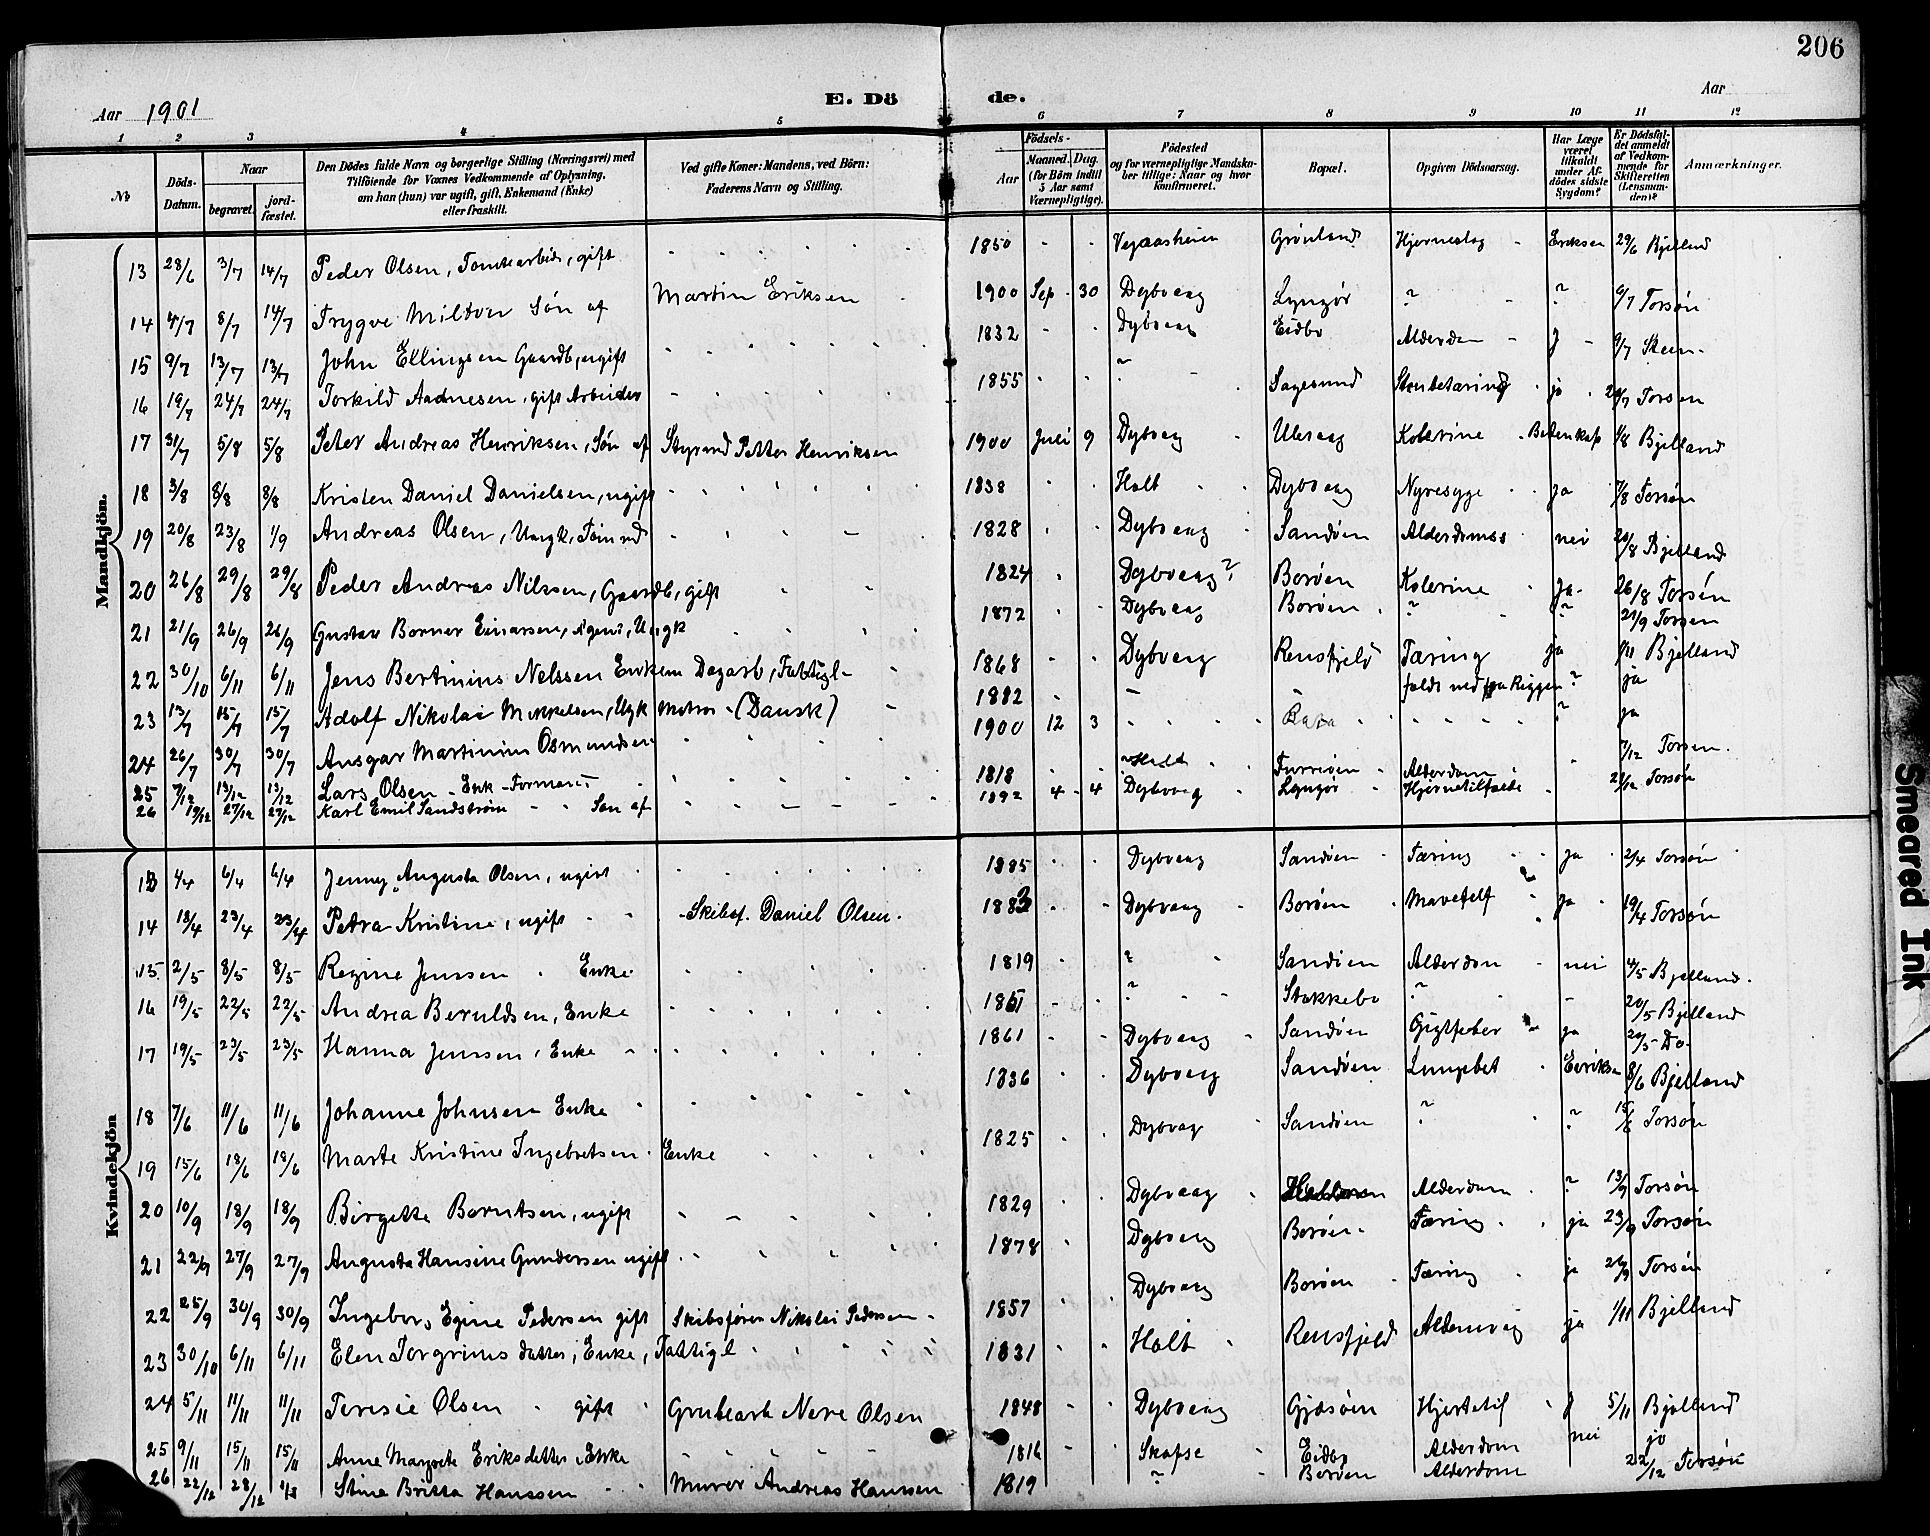 206
Aar 1901
E. Dö de.
Aar
1 2 3 4 5 6 7 8 9 10 11 12
No
Döds-Datum.
Naar
begravet.
jordfæstet.
Den Dödes fulde Navn og borgerlige Stilling (Næringsvei) med
Tilföiende for Voxnes Vedkommende af Oplysning,
om han (hun) var ugift, gift, Enkemand (Enke)
eller fraskilt.
Ved gifte Koner: Mandens, ved Börn:
Faderens Navn og Stilling.
Födsels-
Aar
Maaned. Dag.
(for Börn indtil
5 Aar samt
Værnepligtige).
Födested
og for værnepligtige Mandskaber tillige: Naar og hvor
konfirmeret.
Bopæl.
Opgiven Dödsaarsag.
Har Læge
været
tilkaldt
under Afdödes sidste
Sygdom?
Er Dödsfaldet anmeldt
af Vedkommende for
Skifteretten
(Lensmanden)?
Anmærkninger.
Mandkjön.
13 28/6 3/7 14/7 Peder Olsen, Tomtearbeider, gift 1850 Vegaasheien Grönland Hjerneslag Eriksen 29/6 Bjelland
14 4/7 8/7 14/7 Trygve Milton Sön af Martin Eriksen 1900 Sep 30 Dybvaag Lyngör ? ? 6/7 Torsön
15 9/7 13/7 13/7 John Ellingsen Gaardb, ugift 1832 Dybvaag Eidbo Alderdom J 9/7 Skeen
16 19/7 24/7 24/7 Torkild Aadnesen, gift Arbeider 1855 " Sagesund Strubetæring ja 20/7 Torsön
17 31/7 5/8 5/8 Peter Andreas Henriksen, Sön af Styrmd Petter Henriksen 1900 Juli 9 Dybvaag Ulevaag Kolerine Betenkap 1/8 Bjelland
18 3/8 8/8 8/8 Kristen Daniel Danielsen, ugift 1838 Holt Dybvaag Nyresyge ja 7/8 Torsön
19 20/8 23/8 1/9 Andreas Olsen, Ungk, Tömmd 1828 Dybvaag Sandöen Alderdomss nei 20/8 Bjelland
20 26/8 29/8 29/8 Peder Andreas Nilssen, Gaardb, gift 1824 Dybvaag? Boröen Kolerine Ja 26/8 Torsön
21 21/9 26/9 26/9 Gustav Bornor Einarsen, Agent, Ungk 1872 Dybvaag Boröen ? ? 21/9 Torsön
22 30/10 6/11 6/11 Jens Bertinius Nelssen Enkem Dagarb, Fattigl 1868 Dybvaag Rensfjeld Tæring ja 1/11 Bjelland
23 13/7 15/7 15/7 Adolf Nikolai Mikkelsen, Ugk Matros (Dansk) 1882 faldt ned fra Riggen ? ja
24 26/7 30/7 30/7 Ansgar Martinius Osmundsen 1900 12 3 ? ja
25 7/12 13/12 13/12 Lars Olsen Enk Formand 1818 Holt Furröen Alderdom 7/12 Torsen
26 19/12 27/12 27/12 Karl Emil Sandström Sön af 1892 4 4 Dybvaag Lyngör Hjernetilfælde 21/12 Torsön
Kvindekjön
13 1/4 6/4 6/4 Jenny Augusta Olsen, ugift 1885 Dybvaag Sandöen Tæring ja 2/4 Torsön
14 18/4 23/4 23/4 Petra Kristine, ugift Skibsf. Daniel Olsen 1883 Dybvaag Boröen Mavefelf ja 19/4 Torsön
15 2/5 8/5 8/5 Regine Jenssen Enke 1819 ? Sandöen Alderdom nei 4/5 Bjelland
16 19/5 22/5 22/5 Andrea Beruldsen, Enke 1861 ? Stokkebo ? 20/5 Bjelland
17 19/5 23/5 23/5 Hanna Jenssen, Enke 1861 Dybvaag Sandöen Gigtfeber ja 20/5 Do.
18 7/6 11/6 11/6 Johanne Johnsen Enke 1836 Dybvaag Sandöen Lungebet Eeriksn 8/6 Bjelland
19 15/6 18/6 18/6 Marte Kristine Ingebretsen Enke 1825 Dybvaag Sandöen ? ? 15/6 Torsön
20 10/9 18/9 18/9 Birgette Berntsen, ugift 1829 Dybvaag Alderdom ? 13/9 Torsön
21 22/9 27/9 27/9 Augusta Hansine Gundersen ugift 1878 Dybvaag Boröen Tæring ja 23/9 Torsön
22 25/9 30/9 30/9 Ingeborg Egine Pedersen gift Skibsförer Nikolai Pedersen 1857 Dybvaag Boröen Tæring ja 26/9 Torsön
23 30/10 6/11 6/11 Elen Torgrims datter, Enke, Fattigl 1831 Holt Rensfjeld Aldersvag ja 1/11 Bjelland
24 5/11 11/11 11/11 Teresie Olsen gift Grubearb Nere Olsen 1848 Dybvaag Gjesöen Hjertetif J 5/11 Bjelland
25 9/11 15/11 15/11 Anne Margrete Eriksdatter Enke 1816 Skafse Eidbo Alderdom nei jo
26 22/12 28/12 1/3 Stina Britta Hanssen Murer Andreas Hanssen 1819 ? Boröen Alderdom 22/12 Torsön
Smeared Ink